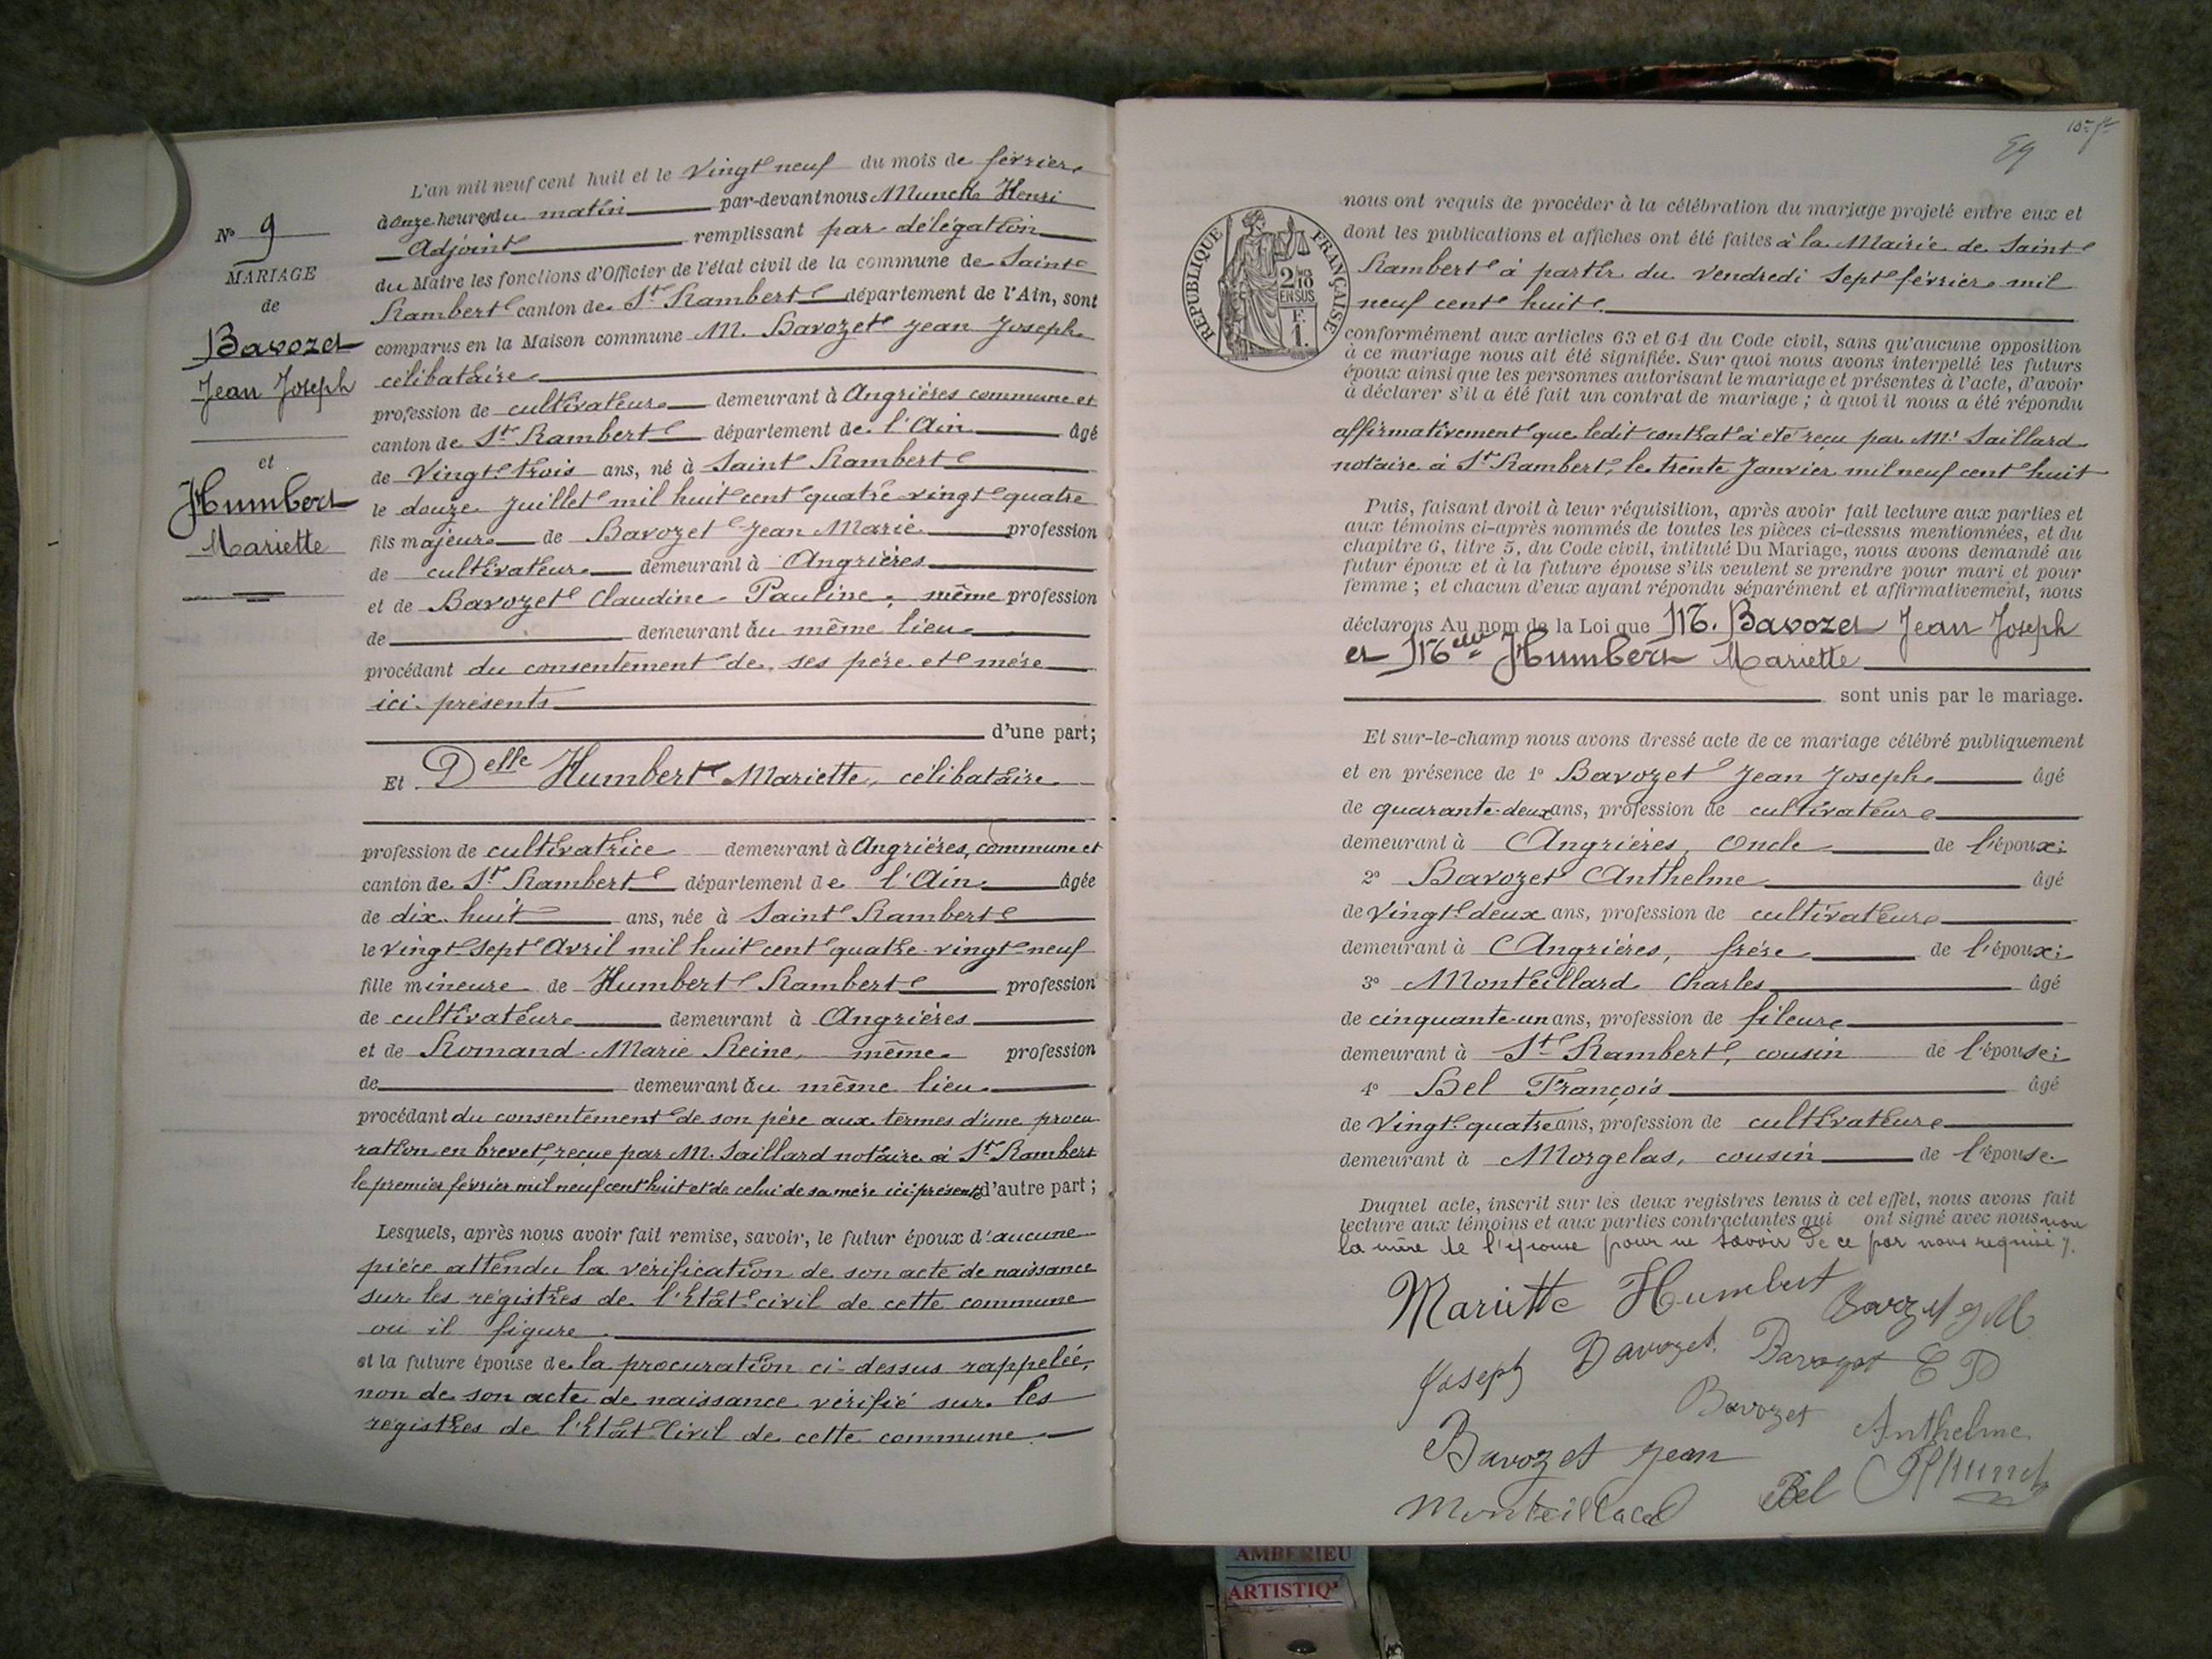 N° 9
MARIAGE
de
Bavozet
Jean Joseph
et
Humbert
Mariette
L'an mil neuf cent huit et le Vingt neuf du mois de février
à onze heures du matin par-devant nous Munck Henri
Adjoint remplissant par délégation
du Maire les fonctions d'Officier de l'état civil de la commune de Saint
Rambert canton de St Rambert département de l'Ain, sont
comparus en la Maison commune M. Bavozet Jean Joseph
célibataire
profession de cultivateur demeurant à Angrières commune et
canton de St Rambert département de l'Ain âgé
de Vingt trois ans, né à Saint Rambert
le douze Juillet mil huit cent quatre vingt quatre
fils majeur de Bavozet Jean Marie profession
de cultivateur demeurant à Angrières
et de Bavozet Claudine Pauline, même profession
de demeurant au même lieu
procédant du consentement de ses père et mère
ici présents
d'une part;
Et Delle Humbert Mariette, célibataire
profession de cultivatrice demeurant à Angrières, commune et
canton de St Rambert département de l'Ain âgée
de dix huit ans, née à Saint Rambert
le vingt sept Avril mil huit cent quatre vingt neuf
fille mineure de Humbert Rambert profession
de cultivateur demeurant à Angrières
et de Romand Marie Reine, même profession
de demeurant au même lieu
procédant du consentement de son père aux termes d'une procu
ration en brevet, reçue par M. Saillard notaire à St Rambert
le premier février mil neuf cent huit et de celui de sa mère ici présente d'autre part;
Lesquels, après nous avoir fait remise, savoir, le futur époux d'aucune
pièce attendu la vérification de son acte de naissance
sur les régistres de l'Etat civil de cette commune
ou il figure
et la future épouse de la procuration ci-dessus rappelée,
non de son acte de naissance vérifié sur les
régistres de l'Etat Civil de cette commune
10e ft
RÉPUBLIQUE FRANÇAISE
2/10
EN SUS
F.
1.
nous ont requis de procéder à la célébration du mariage projeté entre eux et
dont les publications et affiches ont été faites à la Mairie de Saint
Rambert à partir du vendredi sept février mil
neuf cent huit
conformément aux articles 63 et 64 du Code civil, sans qu'aucune opposition
à ce mariage nous ait été signifiée. Sur quoi nous avons interpellé les futurs
époux ainsi que les personnes autorisant le mariage et présentes à l'acte, d'avoir
à déclarer s'il a été fait un contrat de mariage; à quoi il nous a été répondu
affirmativement que ledit contrat à été reçu par Me Saillard
notaire à St Rambert, le trente Janvier mil neuf cent huit
Puis, faisant droit à leur réquisition, après avoir fait lecture aux parties et
aux témoins ci-après nommés de toutes les pièces ci-dessus mentionnées, et du
chapitre 6, titre 5, du Code civil, intitulé Du Mariage, nous avons demandé au
futur époux et à la future épouse s'ils veulent se prendre pour mari et pour
femme; et chacun d'eux ayant répondu séparément et affirmativement, nous
déclarons Au nom de la Loi que M. Bavozet Jean Joseph
et Melle Humbert Mariette
sont unis par le mariage.
Et sur-le-champ nous avons dressé acte de ce mariage célébré publiquement
et en présence de 1° Bavozet Jean Joseph âgé
de quarante-deux ans, profession de cultivateur
demeurant à Angrières, oncle de l'époux;
2° Bavozet Anthelme âgé
de Vingt deux ans, profession de cultivateur
demeurant à Angrières, frère de l'époux;
3° Monteillard Charles âgé
de cinquante-un ans, profession de fileur
demeurant à St Rambert, cousin de l'épouse;
4° Bel François âgé
de Vingt quatre ans, profession de cultivateur
demeurant à Morgelas, cousin de l'épouse
Duquel acte, inscrit sur les deux registres tenus à cet effet, nous avons fait
lecture aux témoins et aux parties contractantes qui ont signé avec nous non
la mère de l'épouse pour ne savoir de ce par nous requise
Mariette Humbert
Bavozet J M
Joseph Bavozet. Bavozet C P
Bavozet Anthelme
Bavozet Jean
Monteillard Bel HMunck
AMBERIEU
ARTISTIQ'